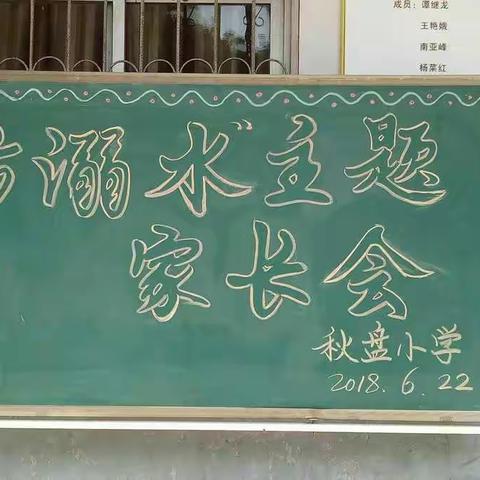 成员：谭继龙
王艳娥
南亚峰
杨菜红
防溺水"主题
家长会
秋盘小学
2018.6.22